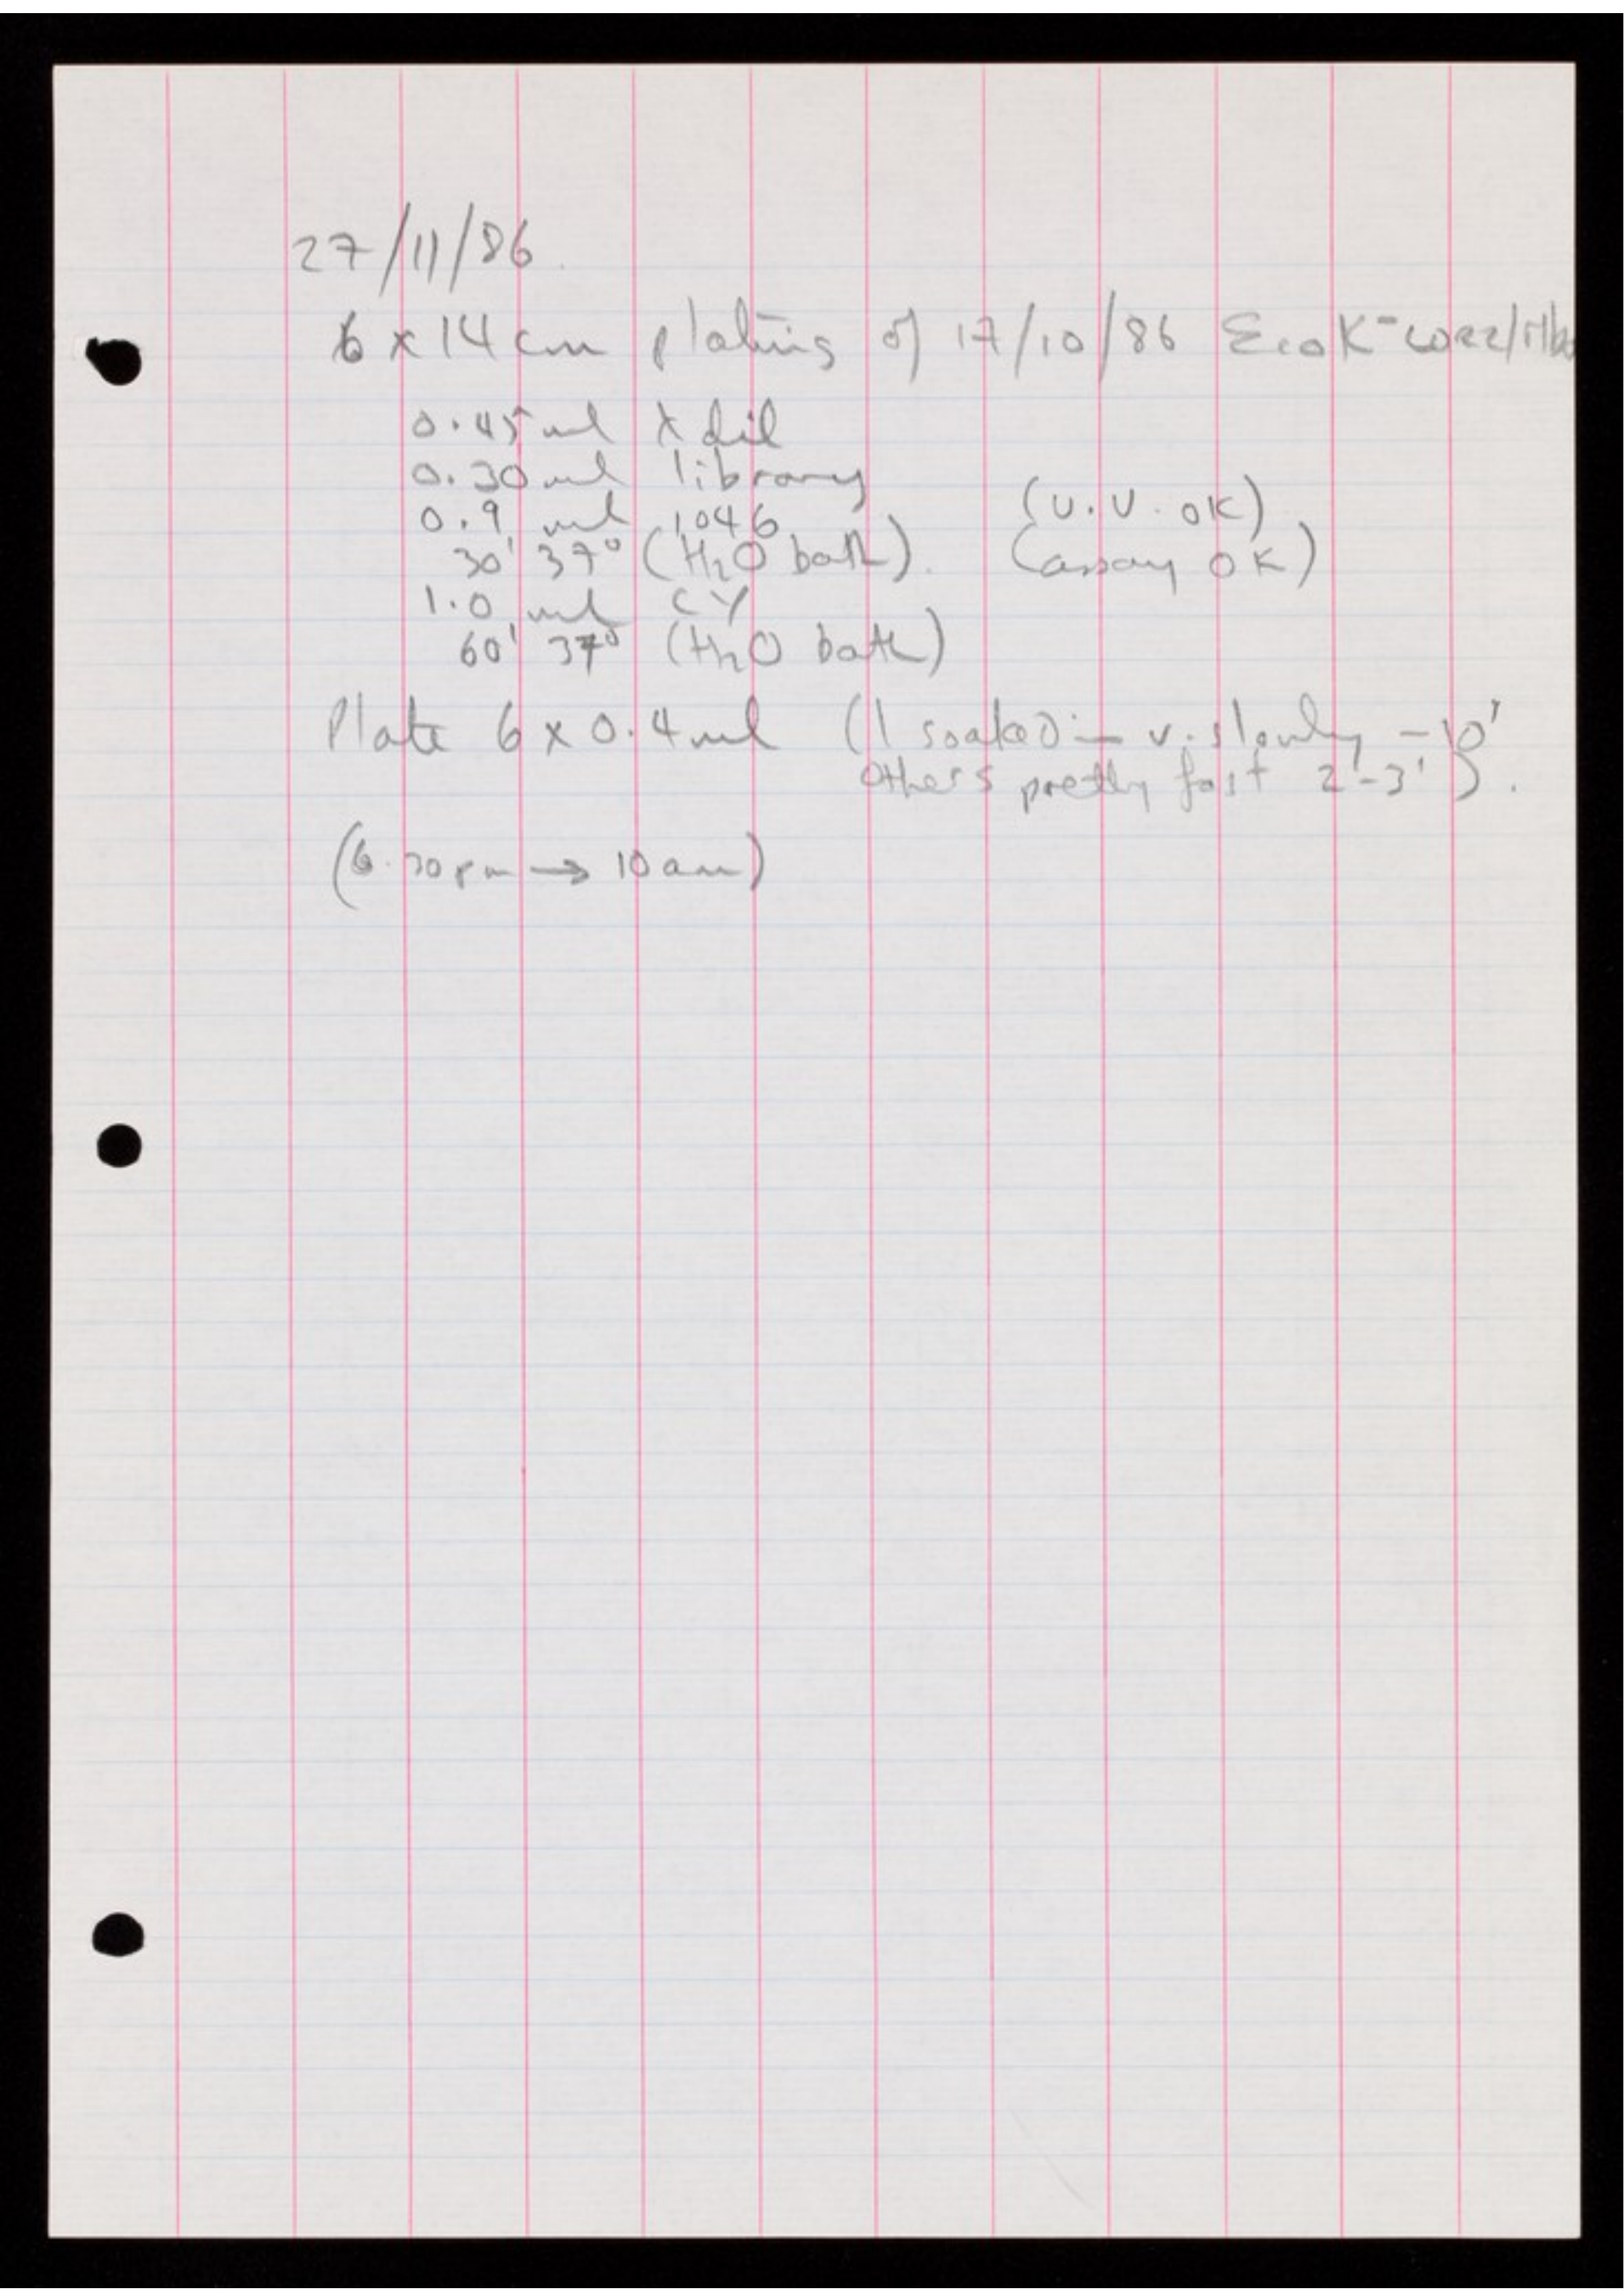 27/11/86.
6 x 14 cm plating of 17/10/86 EcoK⁻ LORZ/Mbo
0.45 ml λ dil
0.30 ml library
0.9 ml 1046 (U.V. OK)
30' 37° (H₂O bath). (assay OK)
1.0 ml CY
60' 37° (H₂O bath)
Plate 6 x 0.4 ml (1 soaked in v. slowly – 10'
others pretty fast 2'-3').
(6.30pm → 10am)